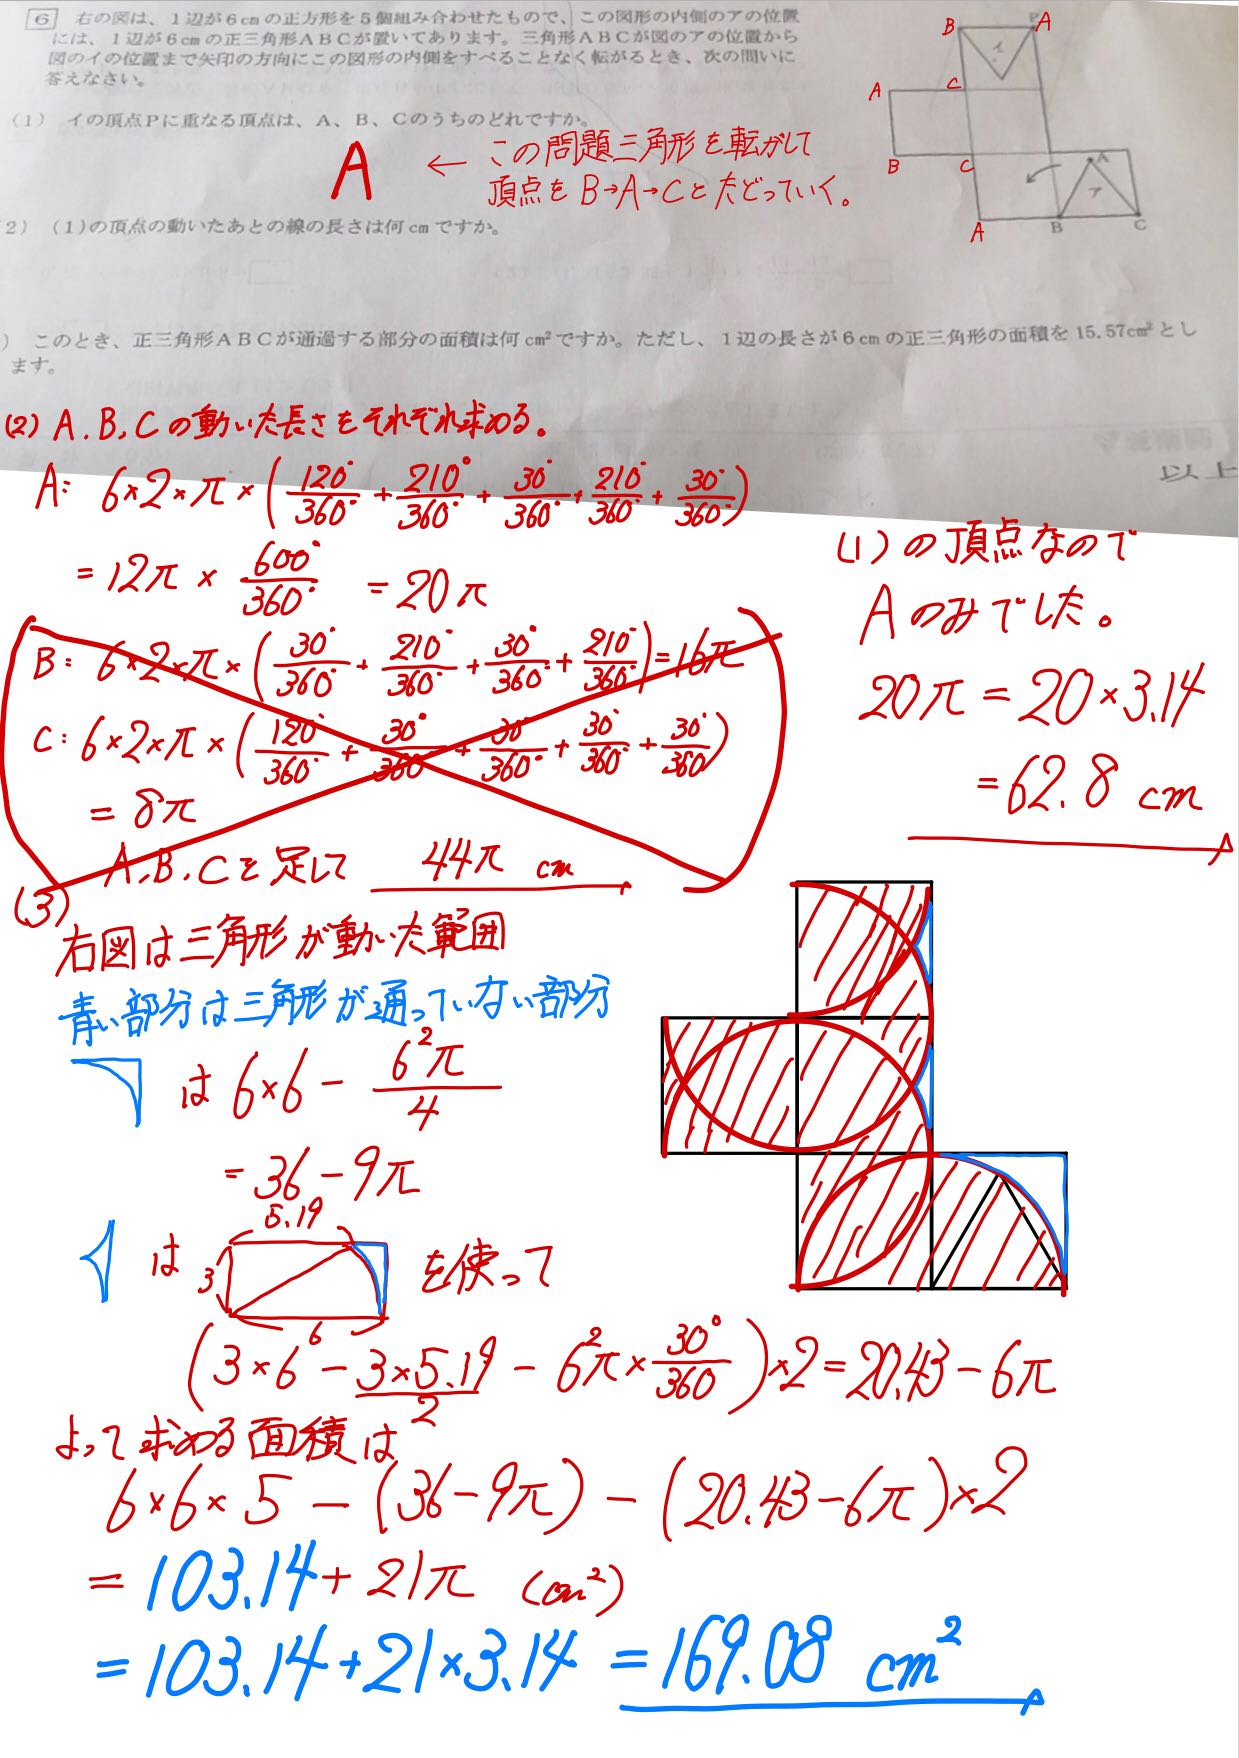 6 右の図は、1辺が6cmの正方形を5個組み合わせたもので、この図形の内側のアの位置
には、1辺が6cmの正三角形ABCが置いてあります。三角形ABCが図のアの位置から
図のイの位置まで矢印の方向にこの図形の内側をすべることなく転がるとき、次の問いに
答えなさい。
B P A
イ
A C
B C A
ア
A B C
(1) イの頂点Pに重なる頂点は、A、B、Cのうちのどれですか。
A ← この問題三角形を転がして
頂点をB→A→Cとたどっていく。
2) (1)の頂点の動いたあとの線の長さは何cmですか。
) このとき、正三角形ABCが通過する部分の面積は何cm²ですか。ただし、1辺の長さが6cmの正三角形の面積を15.57cm²とし
ます。
以上
(2) A.B.Cの動いた長さをそれぞれ求める。
A: 6×2×π×(120°/360° + 210°/360° + 30°/360° + 210°/360° + 30°/360°)
= 12π × 600°/360° = 20π
B: 6×2×π×(30°/360° + 210°/360° + 30°/360° + 210°/360°) = 16π
C: 6×2×π×(120°/360° + 30°/360° + 30°/360° + 30°/360° + 30°/360)
= 8π
A.B.Cを足して 44π cm
(1)の頂点なので
Aのみでした。
20π = 20×3.14
= 62.8 cm
(3)
右図は三角形が動いた範囲
青い部分は三角形が通っていない部分
は 6×6 − 6²π/4
= 36 − 9π
は 5.19 3 6 を使って
(3×6 − 3×5.19/2 − 6²π×30°/360)×2 = 20.43 − 6π
よって求める面積は
6×6×5 − (36−9π) − (20.43−6π)×2
= 103.14 + 21π (cm²)
= 103.14 + 21×3.14 = 169.08 cm²